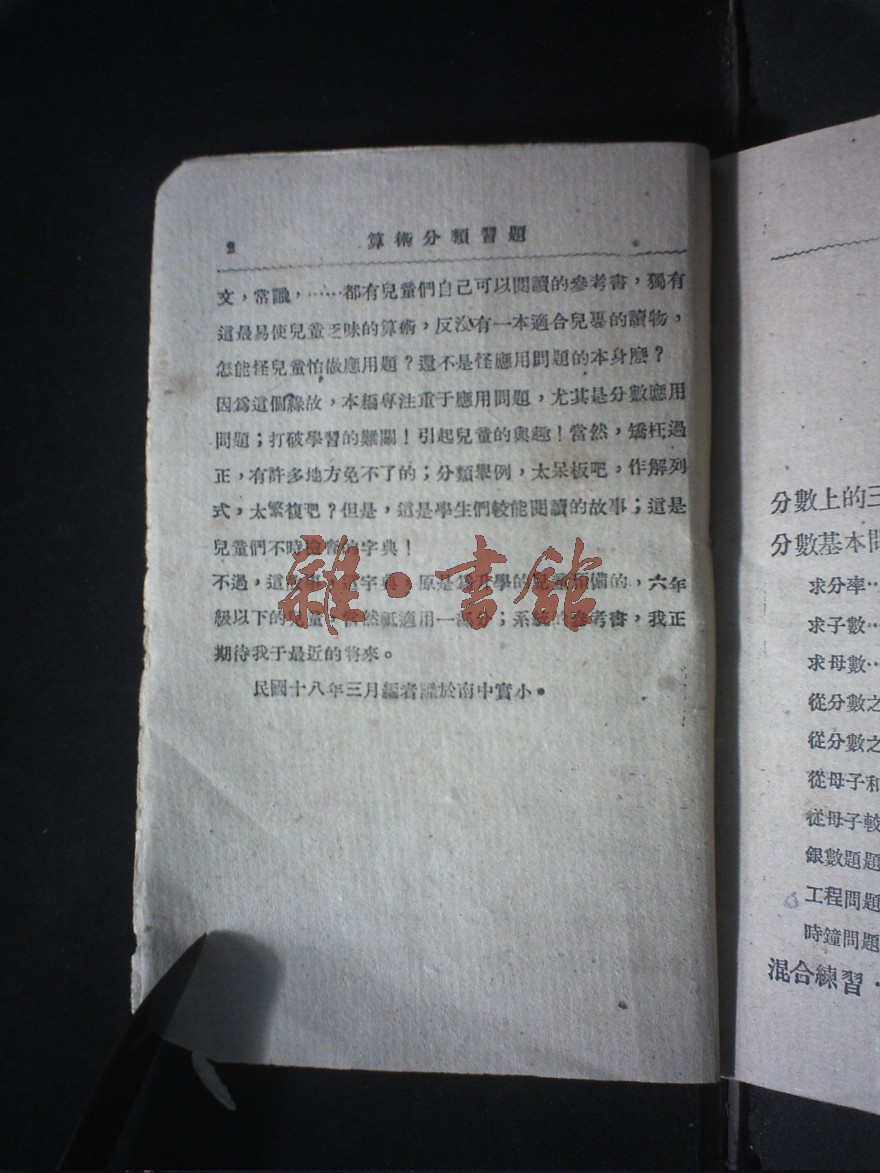 2
算術分類習題
文，常識，……都有兒童們自己可以閱讀的參考書，獨有
這最易使兒童乏味的算術，反沒有一本適合兒童的讀物，
怎能怪兒童怕做應用題？還不是怪應用問題的本身麼？
因爲這個緣故，本編專注重于應用問題，尤其是分數應用
問題；打破學習的難關！引起兒童的興趣！當然，矯枉過
正，有許多地方免不了的；分類舉例，太呆板吧，作解列
式，太繁複吧？但是，這是學生們較能閱讀的故事；這是
兒童們不時檢查的字典！
不過，這故事，這字典，原是爲升學的兒童預備的，六年
級以下的兒童，當然祗適用一部分；系統的參考書，我正
期待我于最近的將來。
民國十八年三月編者識於南中實小。
雜·書館
分數上的三
分數基本問
求分率··
求子數··
求母數··
從分數之
從分數之
從母子和
從母子較
銀數題題
工程問題
時鐘問題
混合練習·